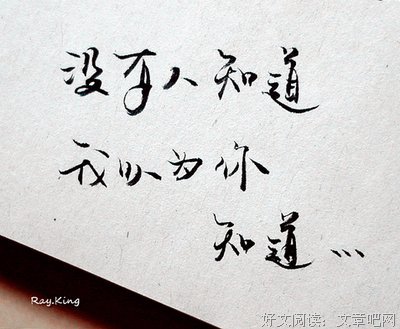 没有人知道
我以为你
知道...
Ray.King
好文阅读：文章吧网